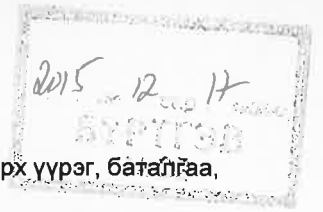 2015 12 17
БҮРТГЭВ
рх үүрэг, баталгаа,